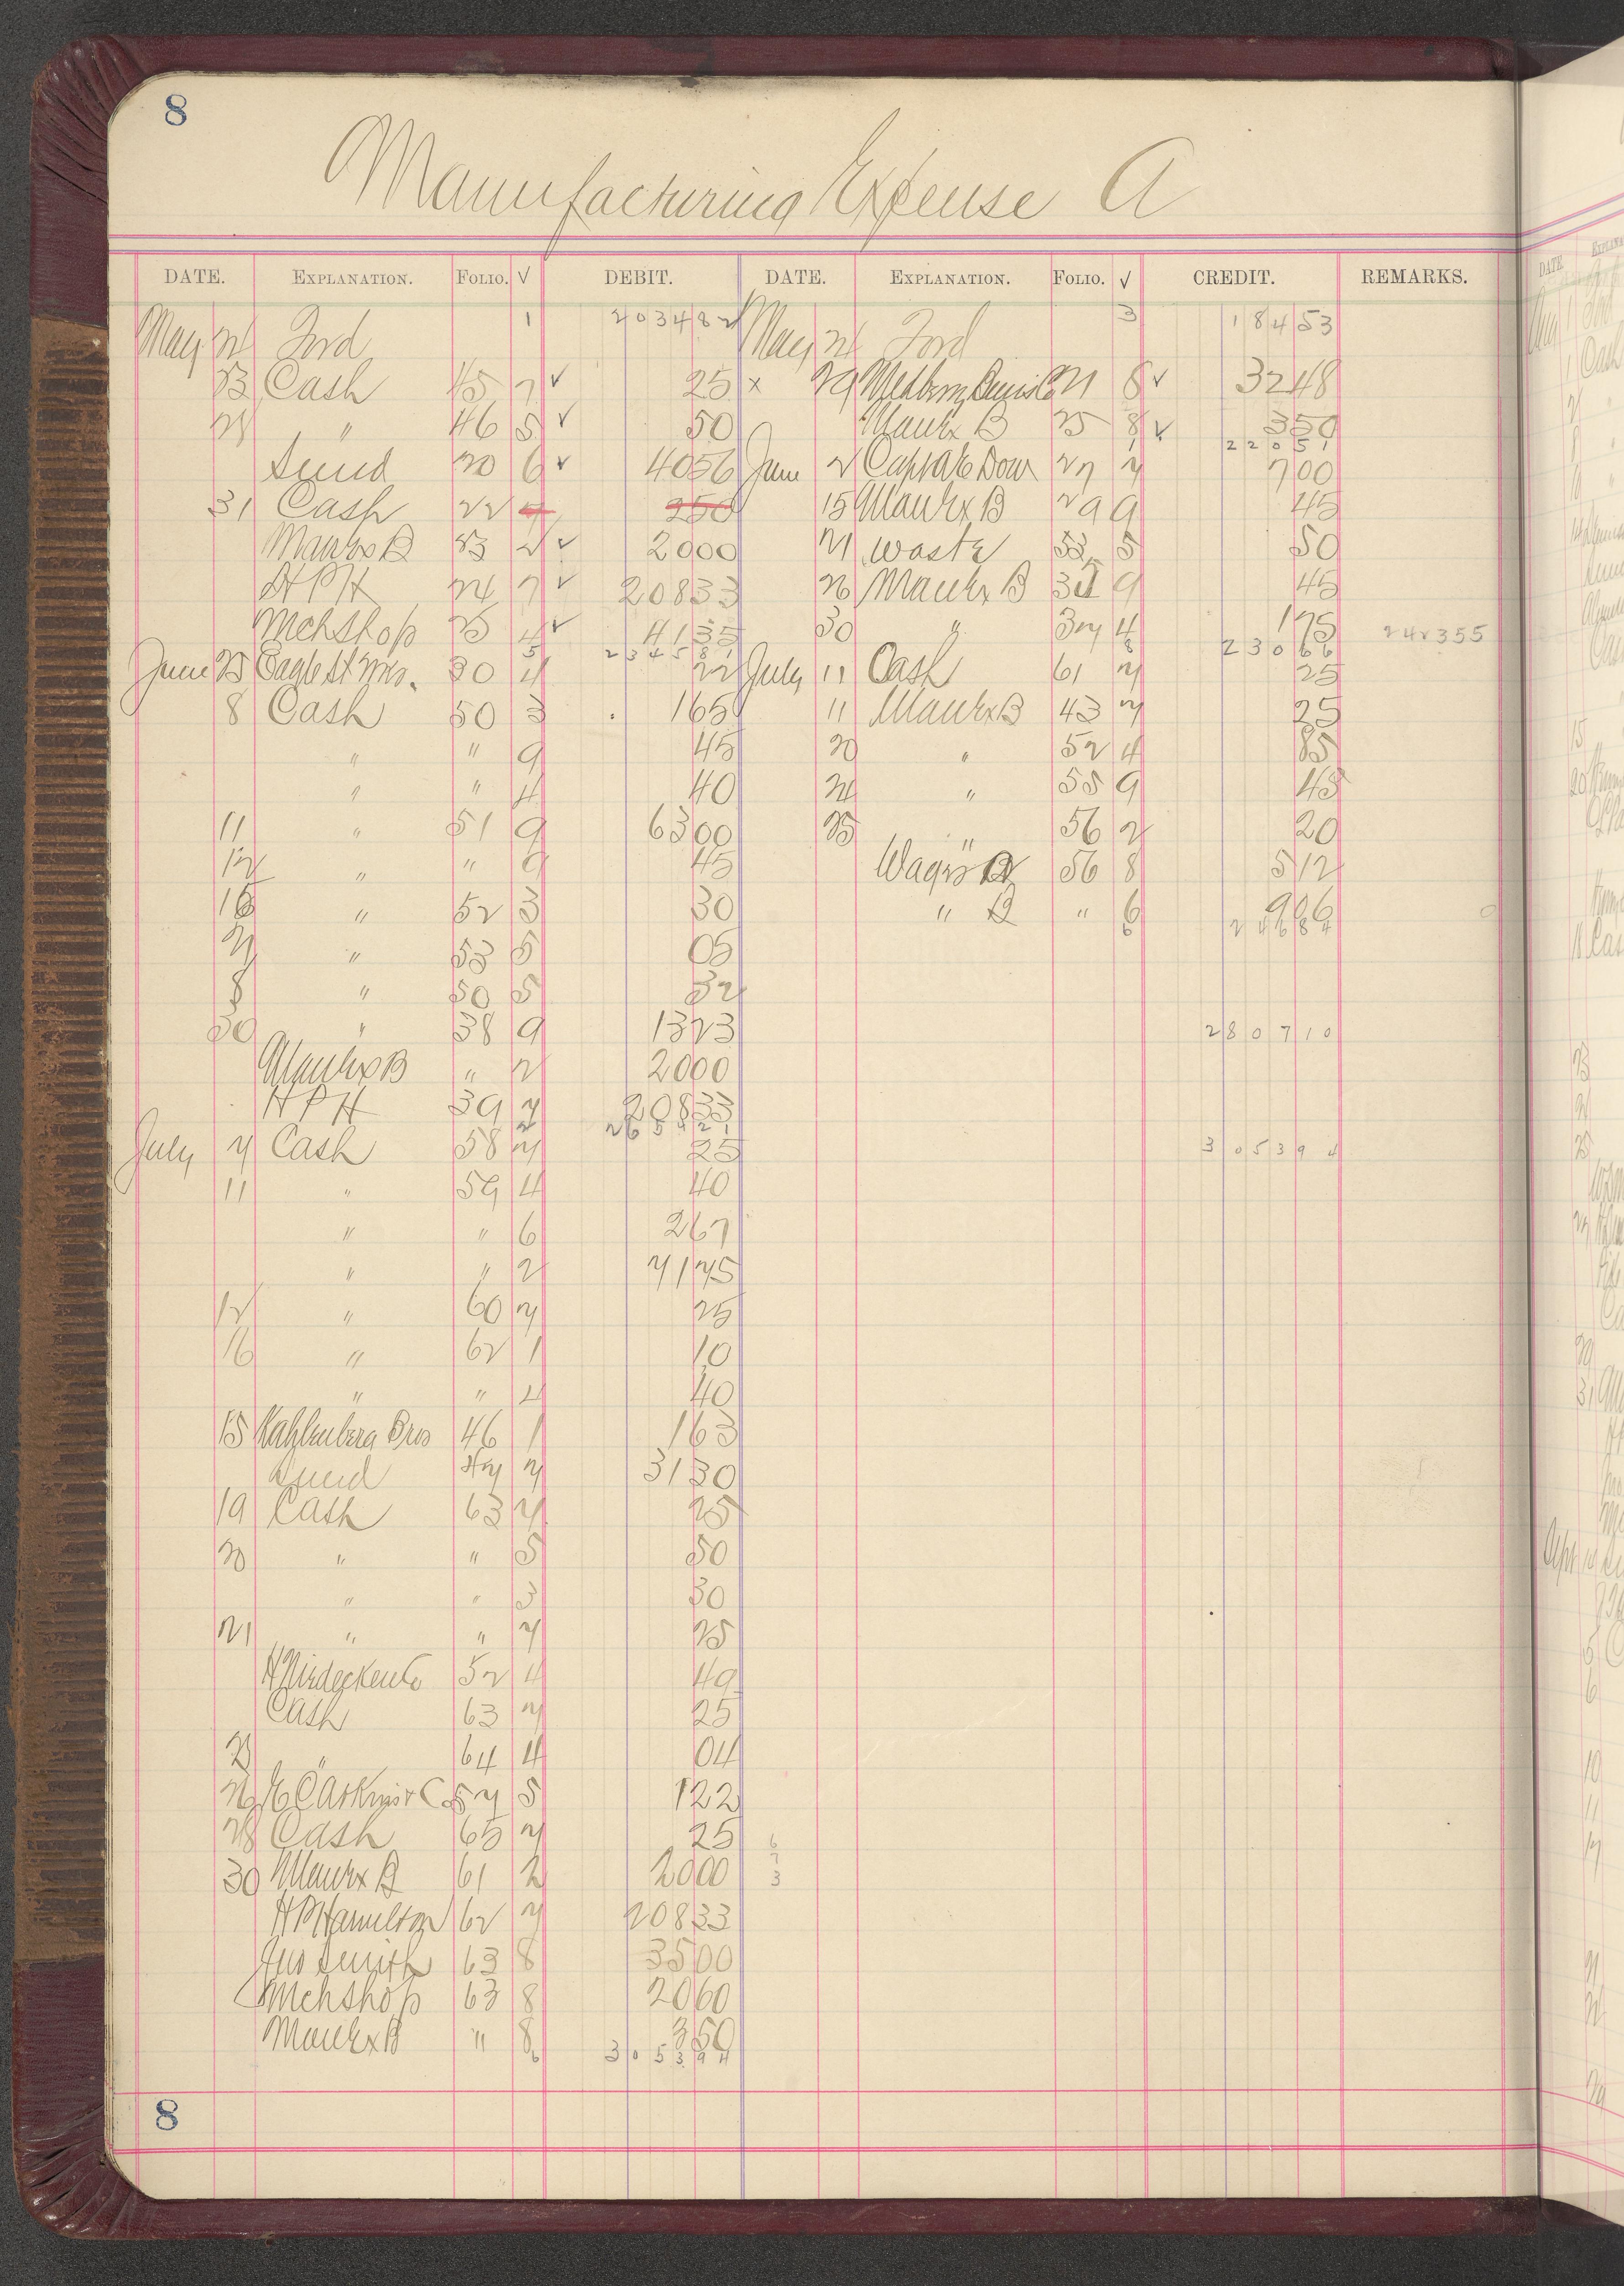 8
Manufacturing Expense A
DATE. EXPLANATION. FOLIO. √ DEBIT. DATE. EXPLANATION. FOLIO. √ CREDIT. REMARKS.
May 24 Ford 1 203482 May 24 Ford 3 18453
23 Cash 45 7 √ 25 x 29 21 8 √ 3248
28 " 46 5 √ 50 Manfx B 25 8 √ 350
1 22051
Sund 20 6 √ 4056 June 2 27 7 700
31 Cash 22 250 15 Manfx B 29 9 45
Manfx B 23 2 √ 2000 21 Waste 32 5 50
H P H 24 7 √ 20833 26 Manfx B 9 45
Mch Shop 25 4 √ 4135 30 " 37 4 175 242355
5 234581 8 23066
June 25 Eagle St Wks. 30 4 22 July 11 Cash 61 7 25
8 Cash 50 3 165 11 Manfx B 43 7 25
" " 9 45 20 " 52 4 85
" " 4 40 24 " 55 9 45
11 " 51 9 6300 25 " 56 2 20
12 " " 9 45 Wages 56 8 512
16 " 52 3 30 " B " 6 906
6 24684
21 " 53 5 05
8 " 50 5 32
30 " 38 9 1323 280710
Manfx B " 2 2000
H P H 39 7 20833
2 265421
July 7 Cash 58 7 25 305394
11 " 59 4 40
" " 6 267
" " 2 7175
12 " 60 7 25
16 " 62 1 10
" " 4 40
15 Kahlenberg Bros 46 1 163
Sund 47 7 3130
19 Cash 63 7 25
20 " " 5 50
" " 3 30
21 " " 7 25
52 4 49
Cash 63 7 25
23 " 64 4 04
26 E C Atkins & Co 57 5 122
28 Cash 65 7 25 6
7
30 Manfx B 61 2 2000 3
H P Hamilton 62 7 20833
Jno Smith 63 8 3500
Mch Shop 63 8 2060
Manfx B " 8 350
6 305394
8